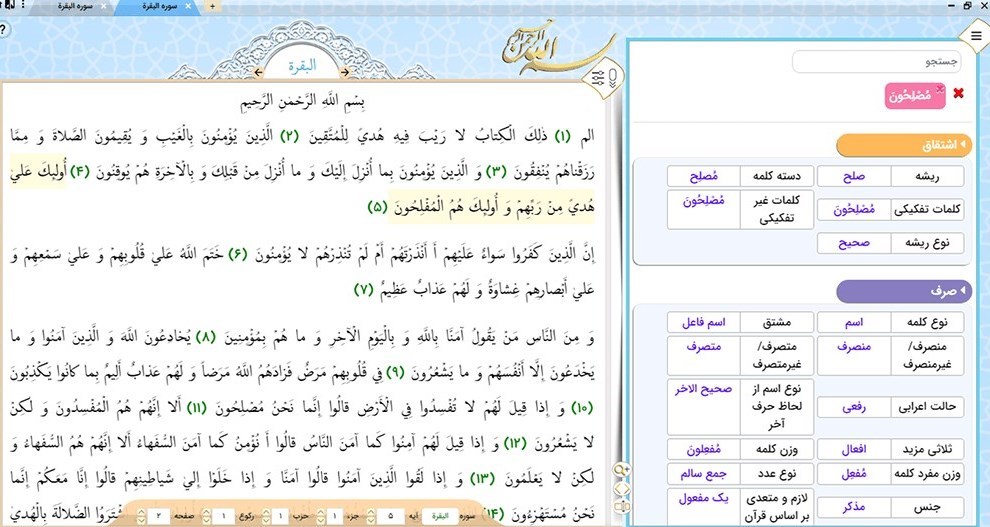 سوره البقرة
سوره البقرة
البقرة
بِسْمِ اللَّهِ الرَّحْمنِ الرَّحِيمِ
الم (۱) ذلِكَ الْكِتابُ لا رَيْبَ فِيهِ هُديً لِلْمُتَّقِينَ (۲) الَّذِينَ يُؤْمِنُونَ بِالْغَيْبِ وَ يُقِيمُونَ الصَّلاةَ وَ مِمَّا
رَزَقْناهُمْ يُنْفِقُونَ (۳) وَ الَّذِينَ يُؤْمِنُونَ بِما أُنْزِلَ إِلَيْكَ وَ ما أُنْزِلَ مِنْ قَبْلِكَ وَ بِالْآخِرَةِ هُمْ يُوقِنُونَ (۴) أُولئِكَ عَليٰ
هُديً مِنْ رَبِّهِمْ وَ أُولئِكَ هُمُ الْمُفْلِحُونَ (۵)
إِنَّ الَّذِينَ كَفَرُوا سَواءٌ عَلَيْهِمْ أَ أَنْذَرْتَهُمْ أَمْ لَمْ تُنْذِرْهُمْ لا يُؤْمِنُونَ (۶) خَتَمَ اللَّهُ عَليٰ قُلُوبِهِمْ وَ عَليٰ سَمْعِهِمْ وَ
عَليٰ أَبْصارِهِمْ غِشاوَةٌ وَ لَهُمْ عَذابٌ عَظِيمٌ (۷)
وَ مِنَ النَّاسِ مَنْ يَقُولُ آمَنَّا بِاللَّهِ وَ بِالْيَوْمِ الْآخِرِ وَ ما هُمْ بِمُؤْمِنِينَ (۸) يُخادِعُونَ اللَّهَ وَ الَّذِينَ آمَنُوا وَ ما
يَخْدَعُونَ إِلَّا أَنْفُسَهُمْ وَ ما يَشْعُرُونَ (۹) فِي قُلُوبِهِمْ مَرَضٌ فَزادَهُمُ اللَّهُ مَرَضاً وَ لَهُمْ عَذابٌ أَلِيمٌ بِما كانُوا يَكْذِبُونَ
(۱۰) وَ إِذا قِيلَ لَهُمْ لا تُفْسِدُوا فِي الْأَرْضِ قالُوا إِنَّما نَحْنُ مُصْلِحُونَ (۱۱) أَلا إِنَّهُمْ هُمُ الْمُفْسِدُونَ وَ لكِنْ
لا يَشْعُرُونَ (۱۲) وَ إِذا قِيلَ لَهُمْ آمِنُوا كَما آمَنَ النَّاسُ قالُوا أَ نُؤْمِنُ كَما آمَنَ السُّفَهاءُ أَلا إِنَّهُمْ هُمُ السُّفَهاءُ وَ
لكِنْ لا يَعْلَمُونَ (۱۳) وَ إِذا لَقُوا الَّذِينَ آمَنُوا قالُوا آمَنَّا وَ إِذا خَلَوْا إِليٰ شَياطِينِهِمْ قالُوا إِنَّا مَعَكُمْ إِنَّما
نَحْنُ مُسْتَهْزِءُونَ (۱۴) الضَّلالَةَ بِالْهُديٰ
سوره البقرة آیه ۵ جزء ۱ حزب ۱ رکوع ۱ صفحه ۲
جستجو
مُصْلِحُونَ
اشتقاق
ریشه صلح دسته کلمه مُصلِح
کلمات تفکیکی مُصْلِحُونَ کلمات غیر تفکیکی مُصْلِحُونَ
نوع ریشه صحیح
صرف
نوع کلمه اسم مشتق اسم فاعل
منصرف/غیرمنصرف منصرف متصرف/غیرمتصرف متصرف
حالت اعرابی رفعی نوع اسم از لحاظ حرف آخر صحیح الاخر
ثلاثی مزید افعال وزن کلمه مُفعِلونَ
وزن مفرد کلمه مُفعِل نوع عدد جمع سالم
جنس مذکر لازم و متعدی بر اساس قرآن یک مفعول